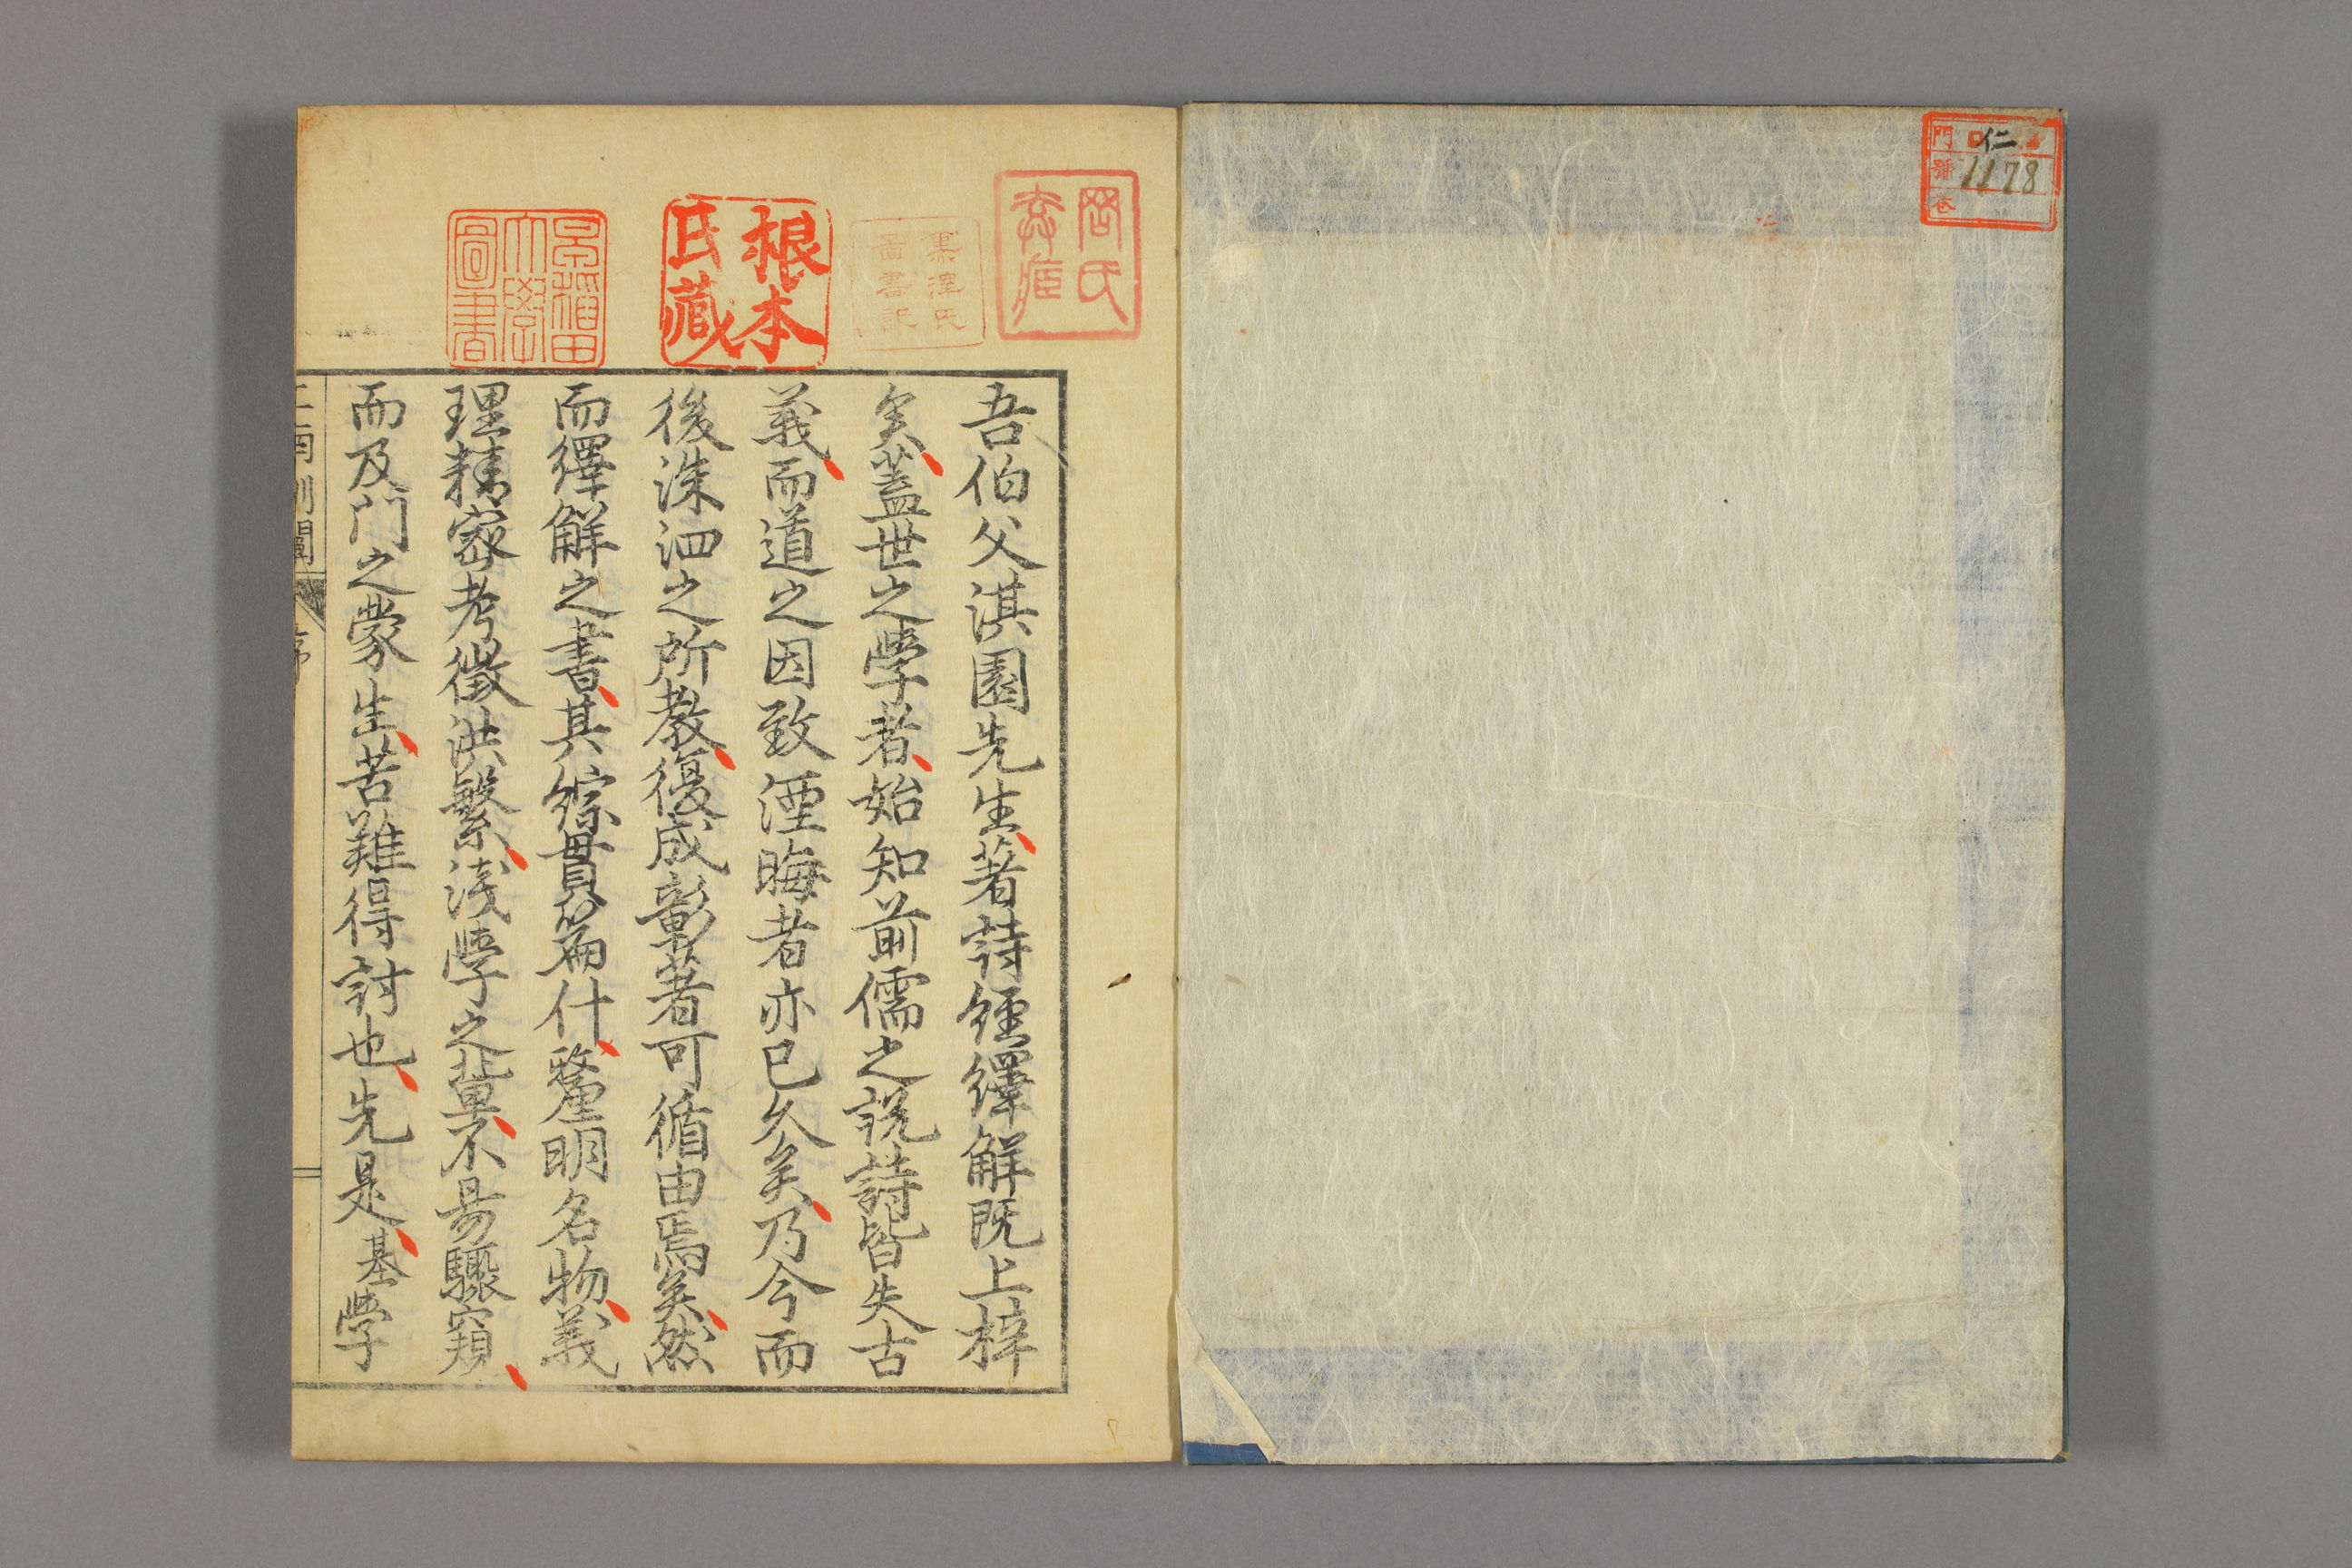 門 仁
號 1178
卷
岡氏
根本
氏藏
黒澤氏
圖書記
早稲田
大學
圖書
吾伯父淇園先生著詩經繹解既上梓
矣蓋世之學者始知前儒之說詩皆失古
義而道之因致湮晦者亦已久矣乃今而
後洙泗之所教復成彰著可循由焉矣然
而繹解之書其綜貫篇什釐明名物義
理精密考徵洪繁淺學之輩不易驟窺
而及門之蒙生苦難得討也先是基學
二南訓闡 序